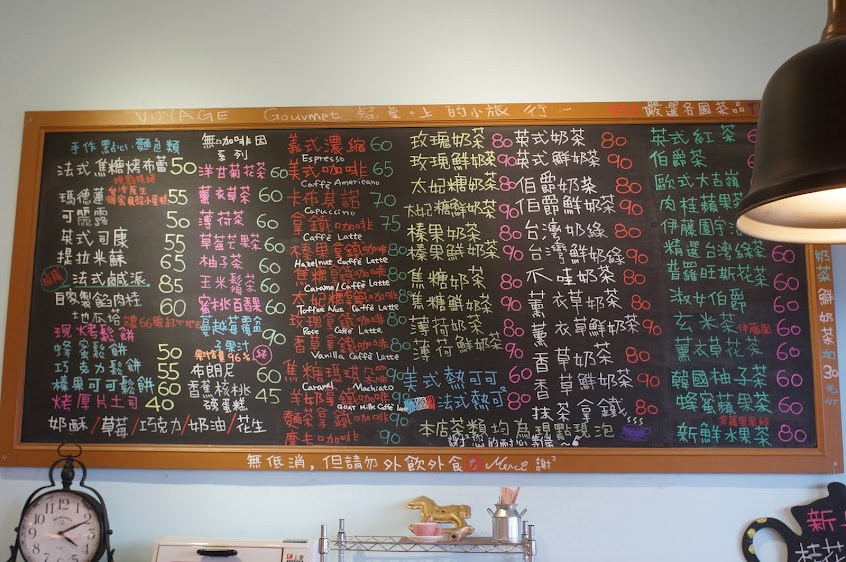 VOYAGE Gourmet 餐桌上的小旅行~
嚴選各國茶品
手作點心.麵包類
法式焦糖烤布蕾 50
現點現烤
瑪德蓮 55
可麗露 50
英式司康 55
提拉米酥 65
法式鹹派 85
自家製餡肉桂 60
地瓜塔
現烤鬆餅
蜂蜜鬆餅 50
巧克力鬆餅 55
榛果可可鬆餅 60
烤厚片土司 40
奶酥/草莓/巧克力/奶油/花生
無咖啡因
系列
洋甘菊花茶 60
薰衣草茶 60
薄荷茶 60
草莓花果茶 60
柚子茶 60
玉米鬚茶 60
蜜桃百香果 60
蔓越莓覆盆 90
子果汁
果汁含量96%
布朗尼 60
香蕉核桃 45
磅蛋糕
義式濃縮 60
Espresso
美式咖啡 65
Caffè Americano
卡布其諾 70
Cappuccino
拿鐵咖啡 75
Caffè Latte
榛果拿鐵咖啡 80
Hazelnut Caffè Latte
焦糖拿鐵咖啡 80
Caramel Caffè Latte
太妃糖拿鐵咖啡 80
Toffee Nut Caffè Latte
玫瑰拿鐵咖啡 80
Rose Caffè Latte
香草拿鐵咖啡 80
Vanilla Caffè Latte
焦糖瑪琪朵咖啡 90
Caramel Machiato
羊奶拿鐵咖啡 90
GOAT Milk Caffè Latte
麵茶拿鐵咖啡 90
摩卡咖啡 90
玫瑰奶茶 80
玫瑰鮮奶茶 90
太妃糖奶茶 80
太妃糖鮮奶茶 90
榛果奶茶 80
榛果鮮奶茶 90
焦糖奶茶 80
焦糖鮮奶茶 90
薄荷奶茶 80
薄荷鮮奶茶 90
美式熱可可 60
法式熱可可 80
英式奶茶 80
英式鮮奶茶 90
伯爵奶茶 80
伯爵鮮奶茶 90
台灣奶綠 80
台灣鮮奶綠 90
爪哇奶茶 80
薰衣草奶茶 80
薰衣草鮮奶茶 90
香草奶茶 80
香草鮮奶茶 90
抹茶拿鐵 80
本店茶類均為現點現泡
謝謝您的耐心等候
英式紅茶
伯爵茶
歐式大吉嶺
肉桂蘋果茶
伊藤園宇治
精選台灣綠茶
普羅旺斯花茶
淑女伯爵 60
玄米茶 伊藤園 60
薰衣草花茶 60
韓國柚子茶 60
蜂蜜蘋果茶 60
新鮮水果茶 80
奶茶鮮奶茶加30元
無低消,但請勿外飲外食 Merci 謝²
新
桂花